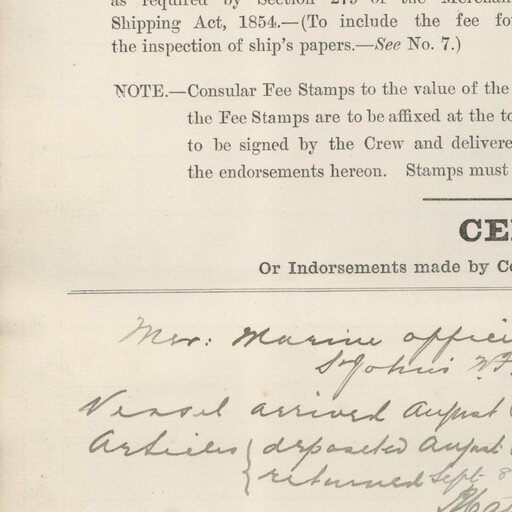 as required by Section 279 of the Merchan
Shipping Act, 1854.—(To include the fee fo
the inspection of ship's papers.—See No. 7.)
NOTE.—Consular Fee Stamps to the value of the
the Fee Stamps are to be affixed at the to
to be signed by the Crew and delivere
the endorsements hereon. Stamps must
CE
Or Indorsements made by Co
Mer: Marine offic
St Johns N.F.
Vessel arrived August
Articles { deposited August
{ returned Sept 8